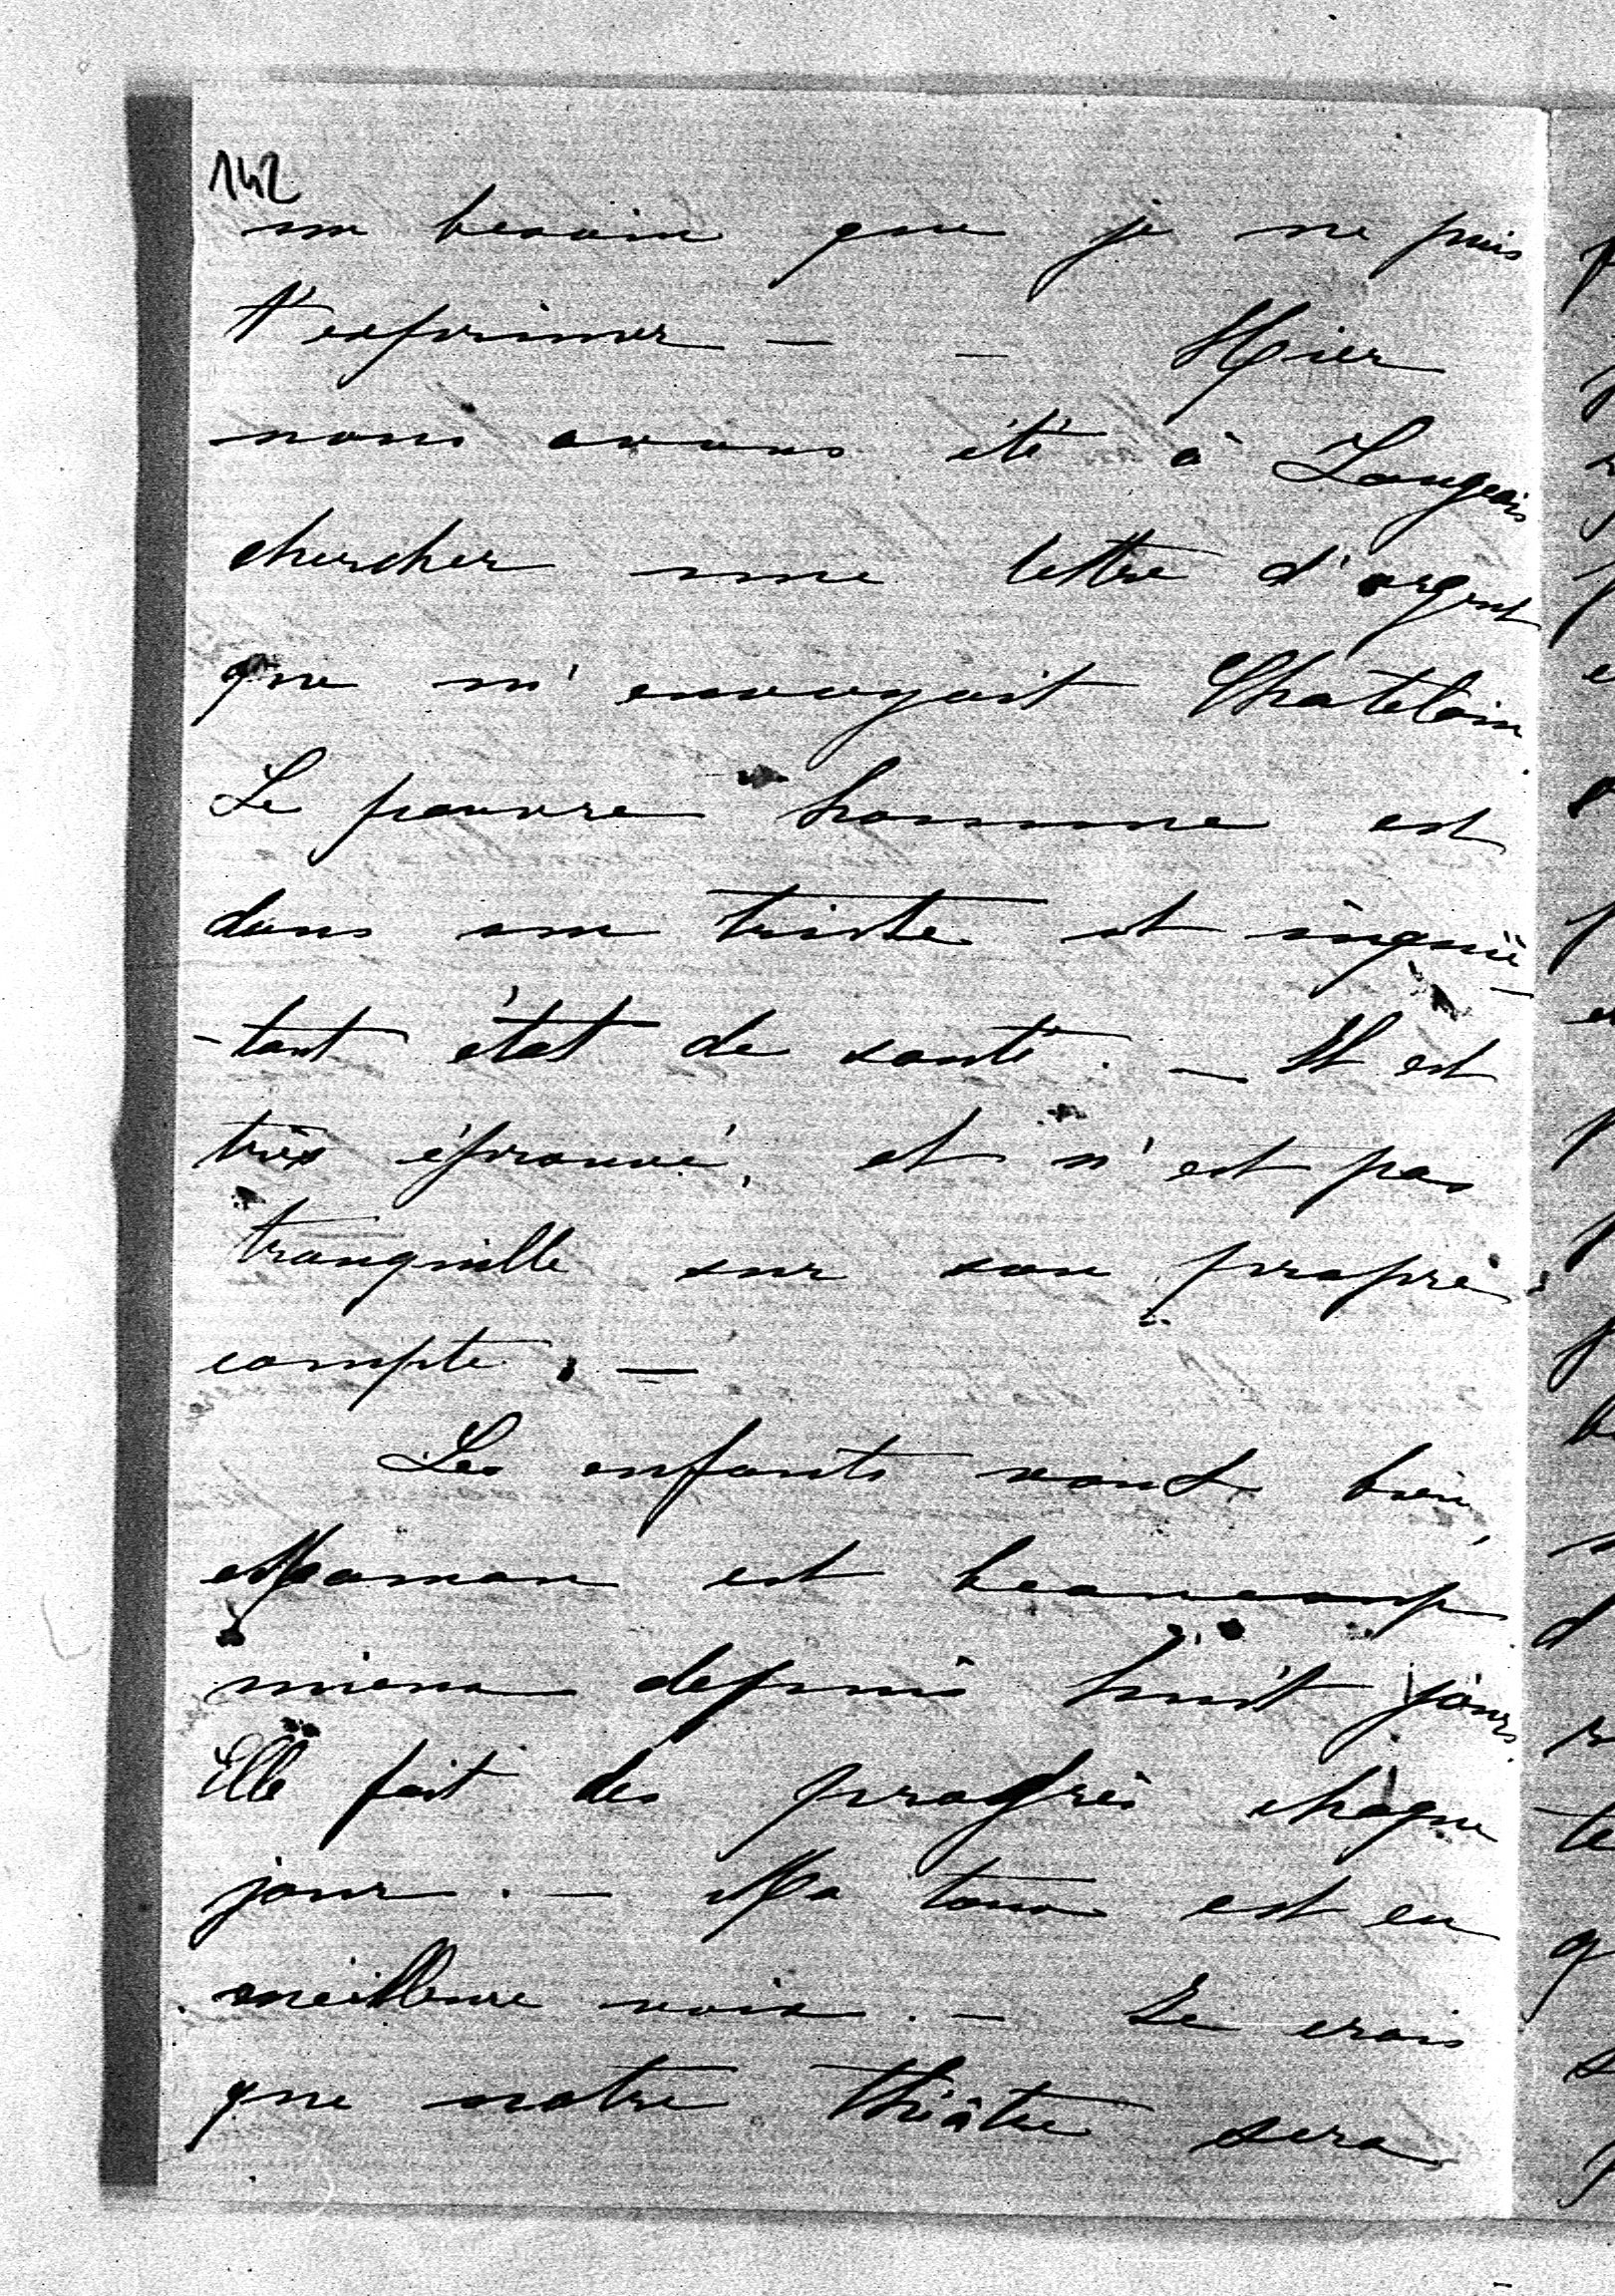 142
un besoin que je ne puis
t'exprimer — — Hier
nous avons été à Langeais
chercher une lettre d'argent
que m'envoyait Chatelain.
Le pauvre homme est
dans un triste et inquié-
-tant état de santé. — Il est
très éprouvé, et n'est pas
tranquille sur son propre
compte. —
Les enfants vont bien,
Maman est beaucoup
mieux depuis huit jours.
Elle fait des progrès chaque
jour. — Ma toux est en
meilleure voix. — Je crois
que notre théâtre sera